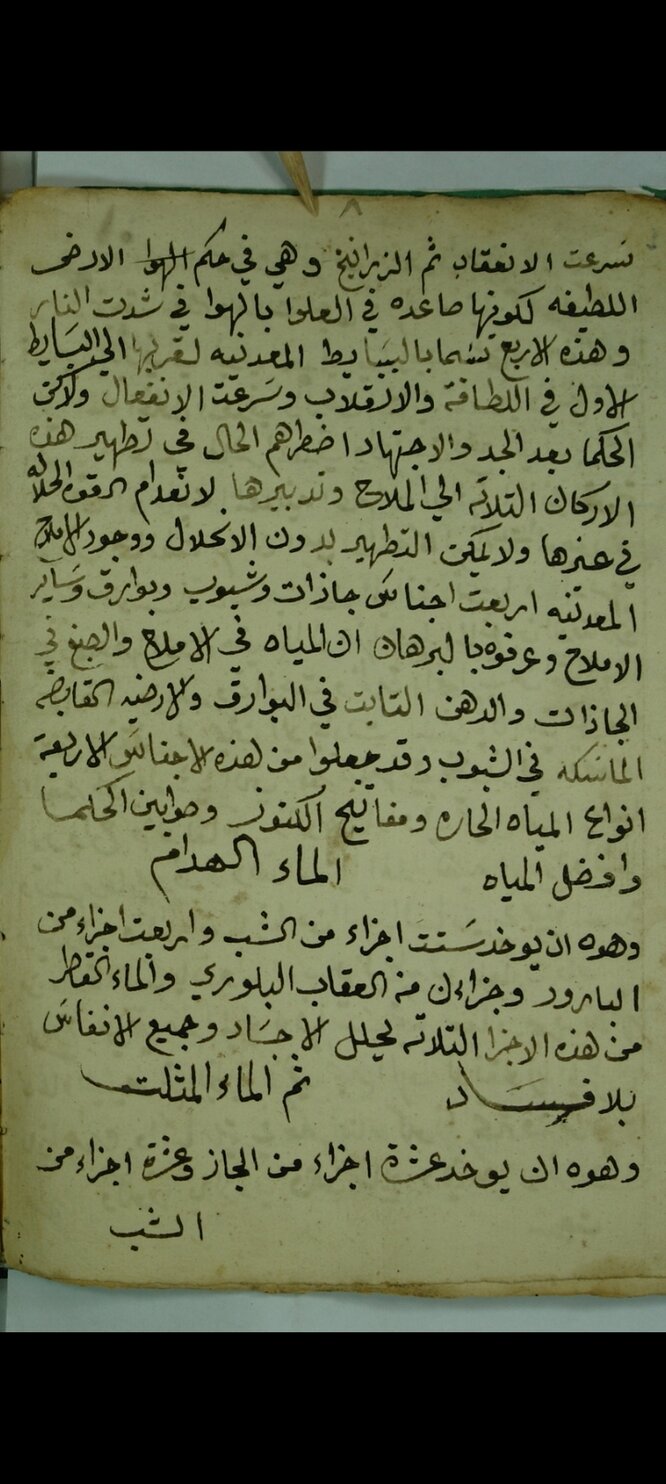 ٨
سرعت الانعقاد ثم الزرانيخ وهي في حكم الهوا الارضى
اللطيفه لكونها صاعده في العلوا بالهوا في شدت النار
وهذه الاربع تسما بالبسايط المعدنيه لقربها الي البسايط
الاول في اللطافة والانقلاب وسرعت الانفعال ولاكن
الحكما بعد الجد والاجتهاد اضطرهم الحال في تطهير هذه
الاركان الثلاثه الي الملاح وتدبيرها لانعدام القوه الحلاله
في غيرها ولا يمكن التطهير بدون الانحلال ووجود الاملاح
المعدنيه اربعت اجناس جازات وشبوب وبوارق وساير
الاملاح وعرفوه بالبرهان ان المياه في الاملاح والصبغ في
الجازات والدهن الثابت في البوارق والارضيه القابضه
الماسكه في الشبوب وقد جعلوا من هذه الاجناس الاربعة
انواع المياه الحاره ومفاتيح الكنوز وصوابين الحكما
وافضل المياه الماء الهدام
وهوه ان يوخد ستت اجزاء من الشب واربعت اجزاء من
البارود وجزاءن من العقاب البلوري والماء القاطر
من هذه الاجزا الثلاثه يحلل الاجساد وجميع الانفاس
بلا فساد ثم الماء المثلث
وهوه ان يوخد عشرة اجزاء من الجاز وعشرة اجزاء من
الشب